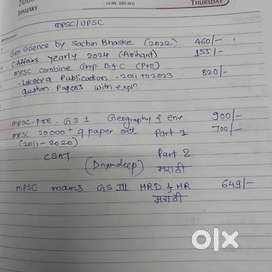 THURSDAY
JANUARY
MPSC/UPSC
Gen Science by Sachin Bhaske (2022) 460/-
C Affairs yearly 2024 (Arihant) 155/-
MPSC Combine Grp B & C (Pre) 820/-
- Lokseva Publication - 2011 to 2023
question Papers with expl
MPSC-PRE - GS 1 Geography & env 900/-
MPSC 20000+ q paper set Part 1 700/-
(2011-2020)
CSAT Part 2
(Dnyandeep) मराठी
MPSC mains GS III HRD & HR 649/-
मराठी
OLX